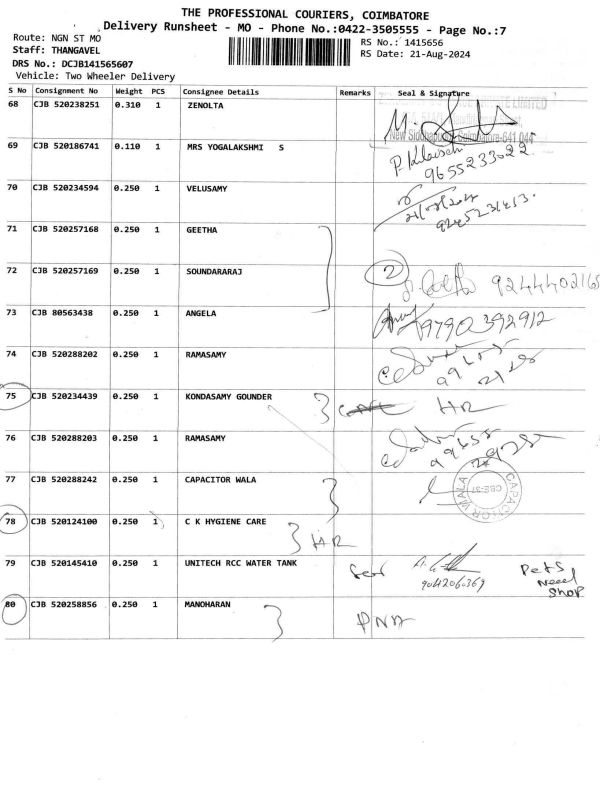 THE PROFESSIONAL COURIERS, COIMBATORE
Delivery Runsheet - MO - Phone No.:0422-3505555 - Page No.:7
Route: NGN ST MO
RS No.: 1415656
Staff: THANGAVEL
RS Date: 21-Aug-2024
DRS No.: DCJB141565607
Vehicle: Two Wheeler Delivery
S No Consignment No Weight PCS Consignee Details Remarks Seal & Signature
68 CJB 520238251 0.310 1 ZENOLTA
LIMITED
New Siddhapudur, Coimbatore-641 044
69 CJB 520186741 0.110 1 MRS YOGALAKSHMI S
9655233022
70 CJB 520234594 0.250 1 VELUSAMY
9245231413.
71 CJB 520257168 0.250 1 GEETHA
72 CJB 520257169 0.250 1 SOUNDARARAJ 2
9244402165
73 CJB 80563438 0.250 1 ANGELA 9790392912
74 CJB 520288202 0.250 1 RAMASAMY
75 CJB 520234439 0.250 1 KONDASAMY GOUNDER HR
76 CJB 520288203 0.250 1 RAMASAMY
77 CJB 520288242 0.250 1 CAPACITOR WALA
CAPACITOR WALA
CBE-37
78 CJB 520124100 0.250 1 C K HYGIENE CARE HR
79 CJB 520145410 0.250 1 UNITECH RCC WATER TANK
9042060369
Pets
Need
Shop
80 CJB 520258856 0.250 1 MANOHARAN DNA